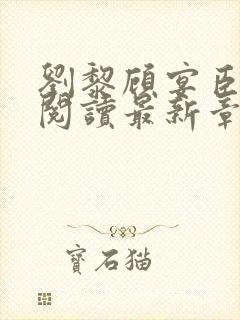 劉黎顧宴臣
閱讀最新章
寶石貓